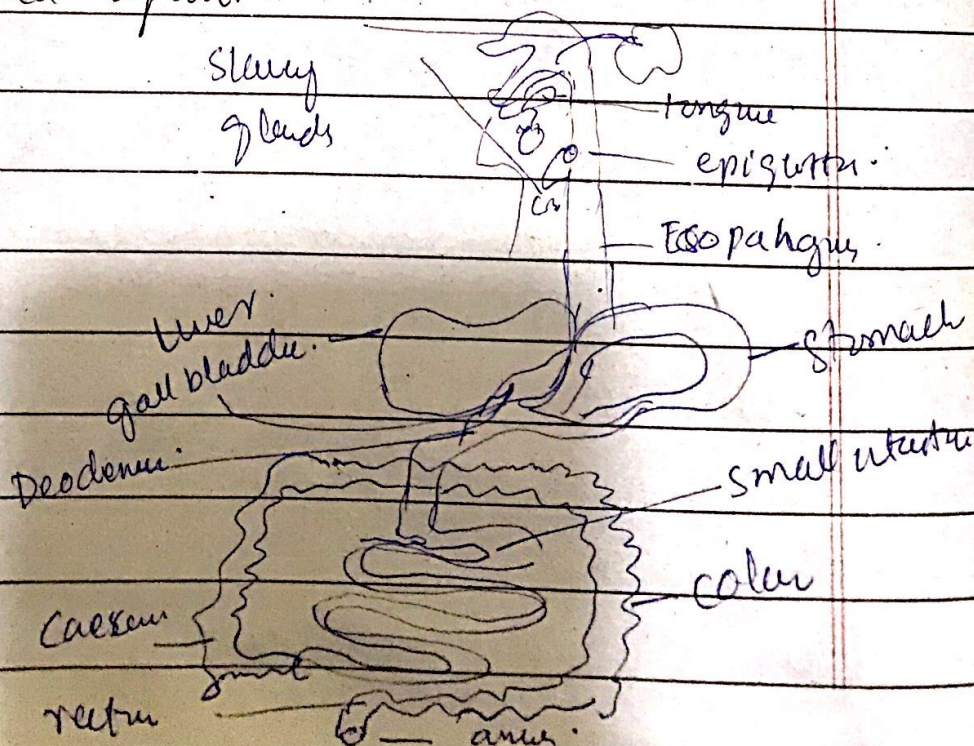 Slavry
glands
tongue
epiglotti.
Esopahgus.
liver.
gall bladder.
stomach
Deodenum.
small intestine
Colon
Caecum
rectum
anus.